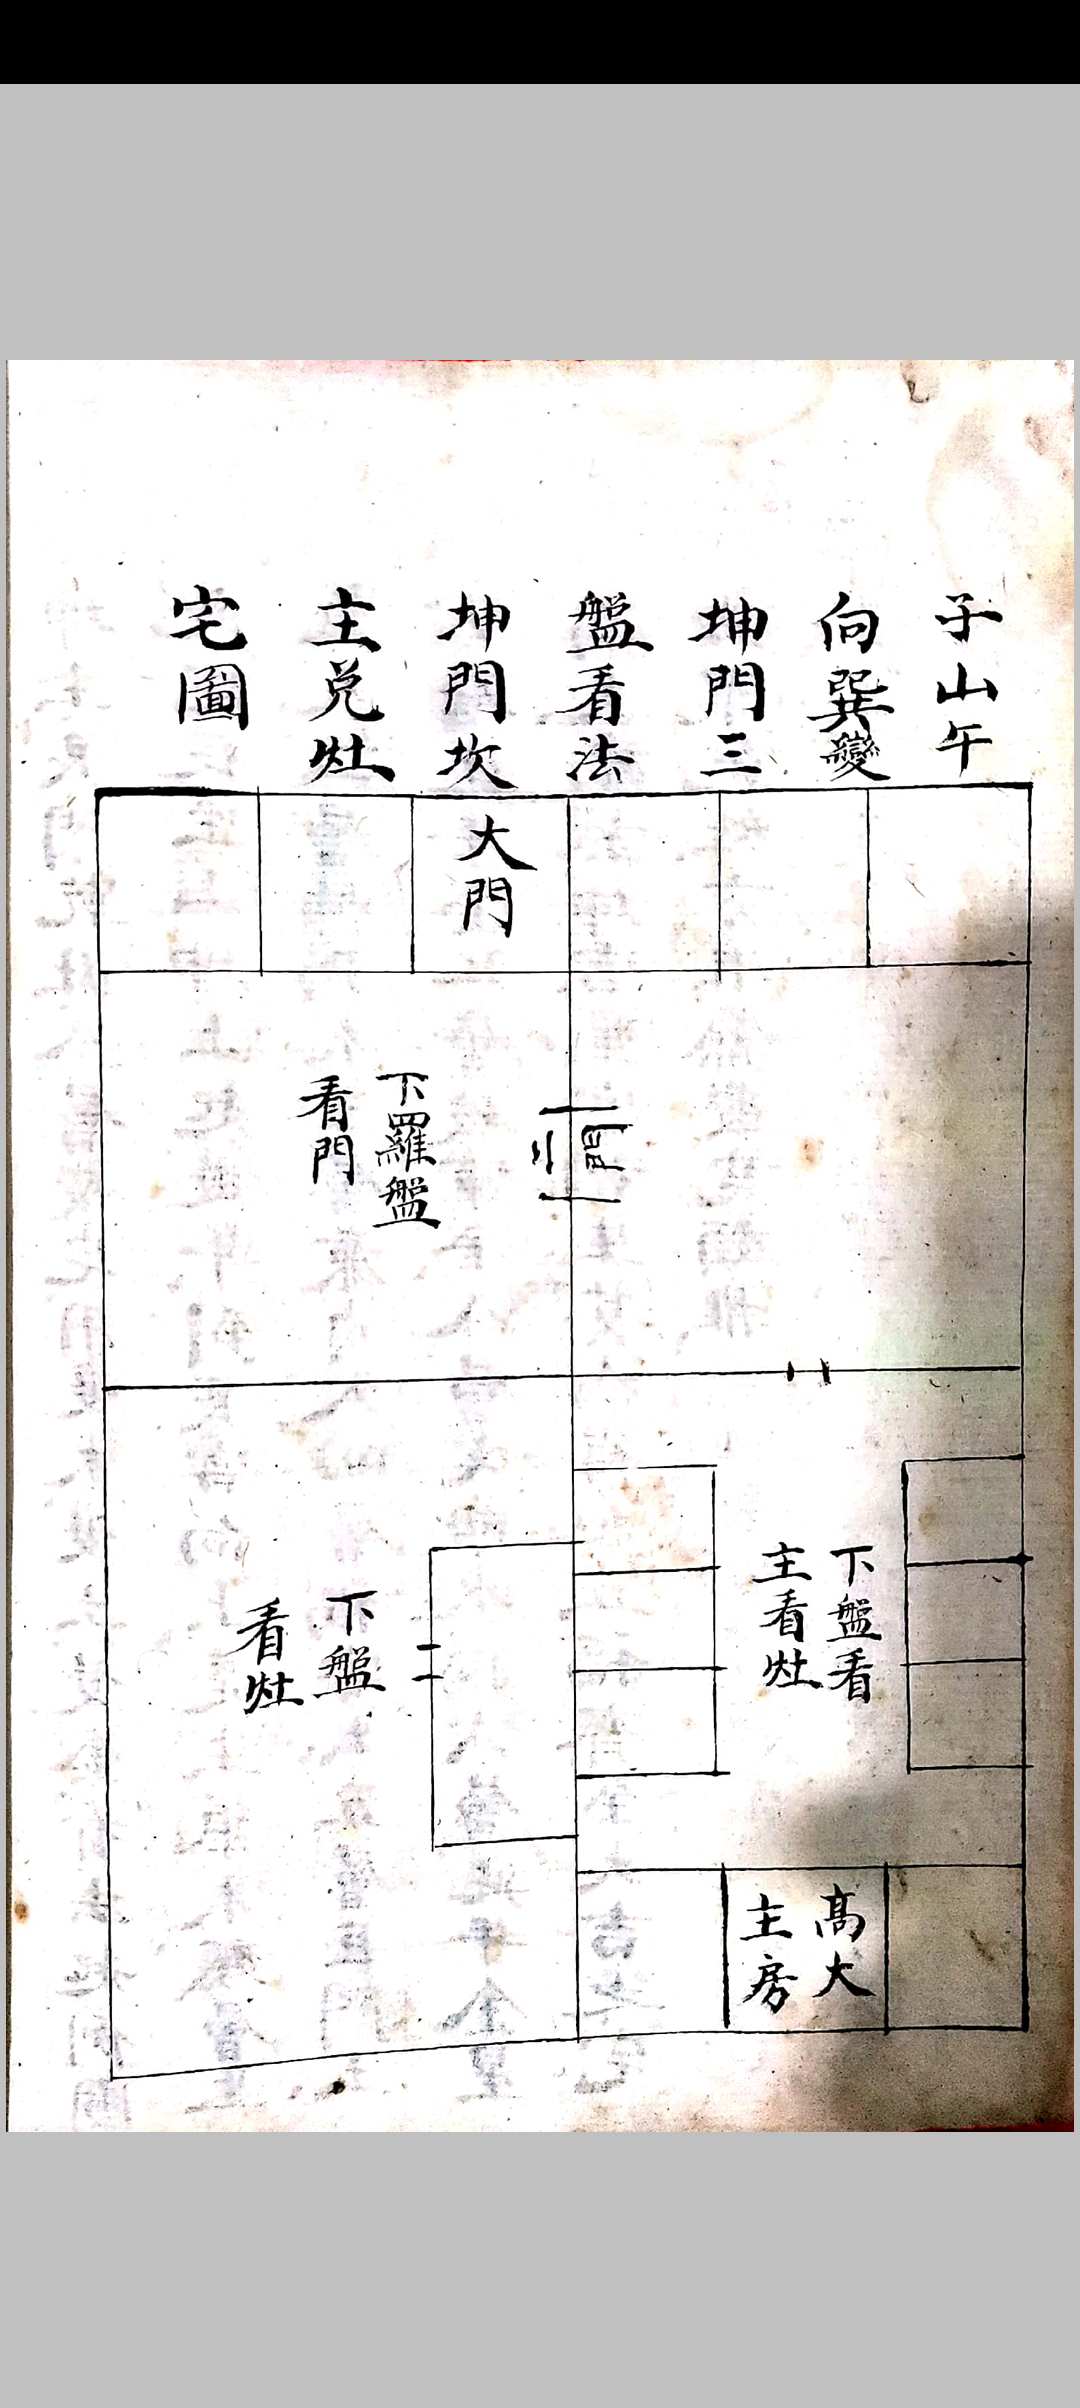 子山午
向巽變
坤門三
盤看法
坤門坎
主兌灶
宅圖
大門
二門
下羅盤
看門
下盤看
主看灶
下盤
看灶
高大
主房